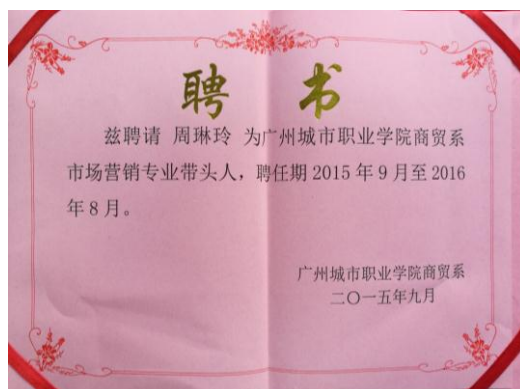 聘 书
兹聘请 周琳玲 为广州城市职业学院商贸系
市场营销专业带头人，聘任期 2015 年 9 月至 2016
年 8 月。
广州城市职业学院商贸系
二〇一五年九月